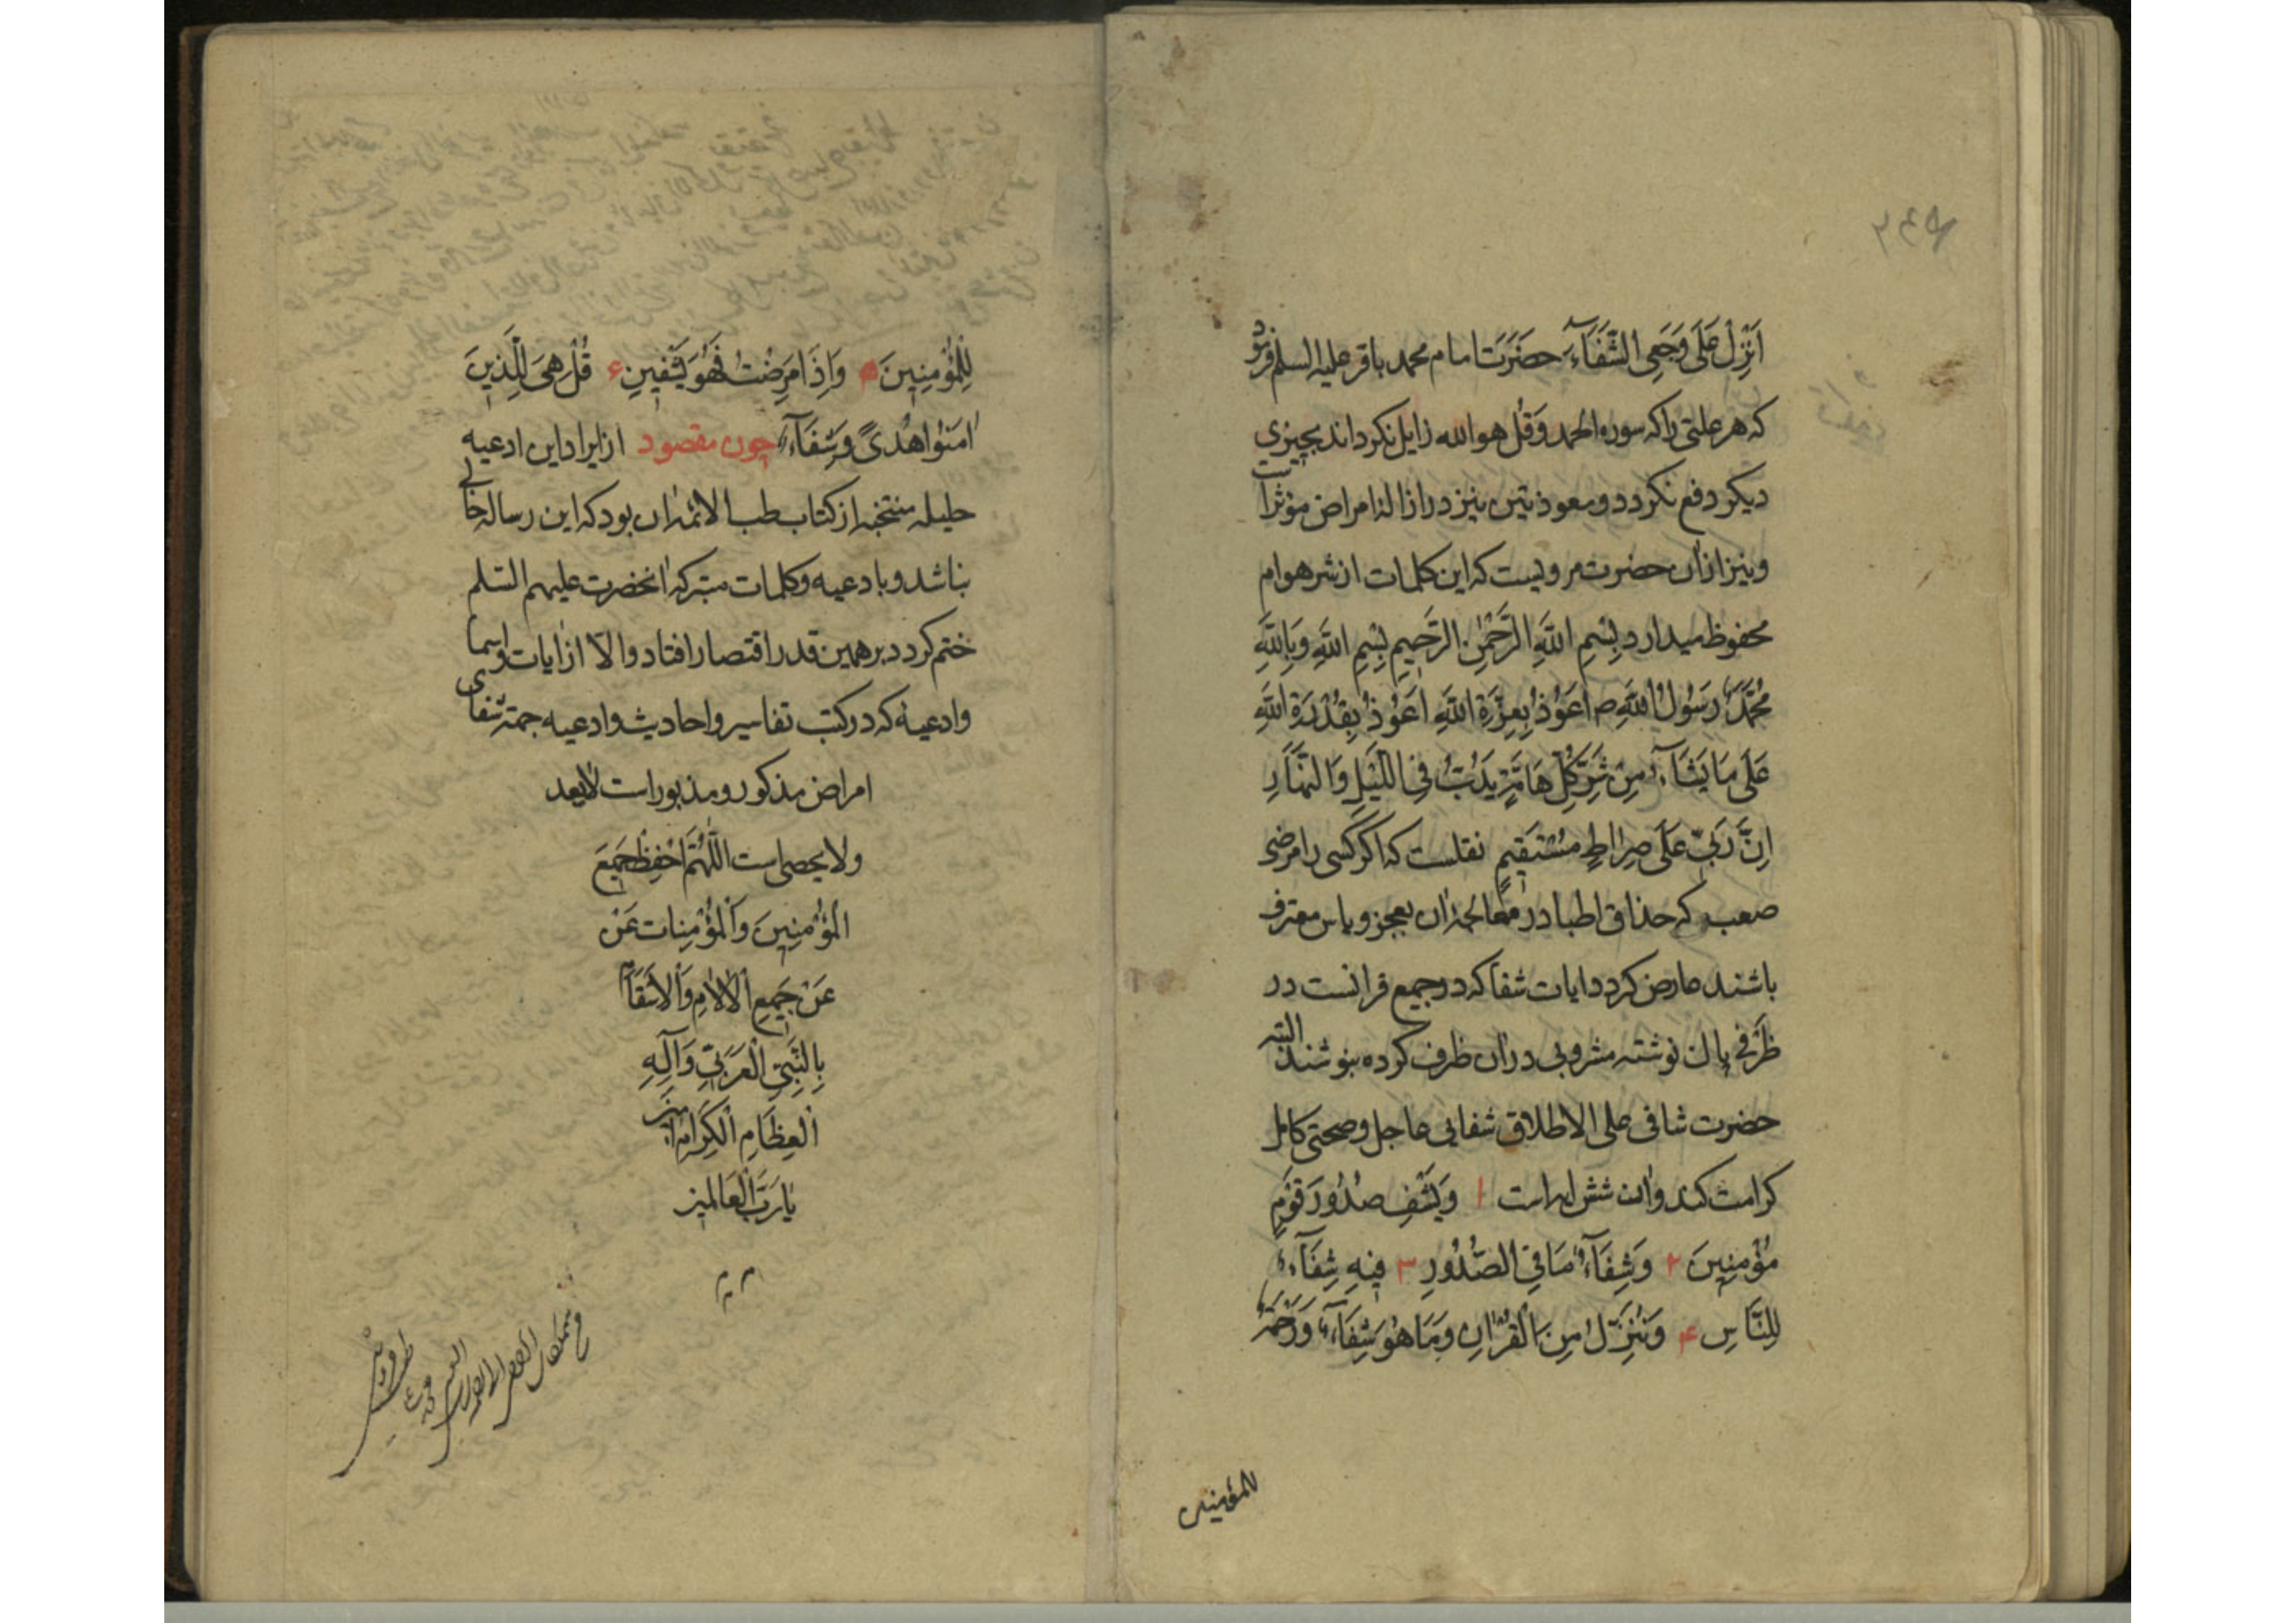 اَنْزِلْ عَلَى وَجَعِى الشَّفَآءَ حضرت امام محمد باقر علیه السلم فرمود
که هر علتی را که سوره الحمد و قل هو الله زایل نکرداند بچیزی
دیکر دفع نکردد و معوذتین نیز در ازاله امراض مؤثر است
و نیز ازان حضرت مرویست که این کلمات از شر هوام
محفوظ میدارد بِسْمِ اللَّهِ الرَّحْمٰنِ الرَّحِیمِ بِسْمِ اللَّهِ وَبِاللَّهِ
مُحَمَّدٌ رَسُولُ اللَّهِ ص اَعُوْذُ بِعِزَّةِ اللَّهِ اَعُوْذُ بِقُدْرَةِ اللَّهِ
عَلَى مَا یَشَآءُ مِنْ شَرِّ کُلِّ هَامَّةٍ یَدُبُّ فِی اللَّیْلِ وَالنَّهَارِ
اِنَّ رَبِّی عَلَى صِرَاطٍ مُسْتَقِیمٍ نقلست که اکر کسی را مرضی
صعب که حذاق اطبا در معالجهٔ آن بعجز و یاس معترف
باشند عارض کردد ایات شفا که در جمیع قرانست در
ظرفی پاک نوشته مشروبی دران ظرف کرده بنوشند البته
حضرت شافی علی الاطلاق شفایی عاجل و صحتی کامل
کرامت کند وان شش ایه است ۱ وَیَشْفِ صُدُورَ قَوْمٍ
مُؤْمِنِینَ ۲ وَشِفَآءٌ مَا فِی الصُّدُورِ ۳ فِیهِ شِفَآءٌ
لِلنَّاسِ ۴ وَنُنَزِّلُ مِنَ الْقُرْاٰنِ وَمَا هُوَ شِفَآءٌ وَرَحْمَةٌ
للمؤمنین
لِلْمُؤْمِنِینَ ۵ وَاِذَا مَرِضْتُ فَهُوَ یَشْفِینِ ۶ قُلْ هِیَ لِلَّذِینَ
اٰمَنُوا هُدًى وَشِفَآءٌ چون مقصود از ایراد این ادعیه
جلیله منتخبه از کتاب طب الائمه ان بود که این رساله خالی
نباشد و بادعیه و کلمات متبرکه انحضرت علیهم السلم
ختم کردد برهمین قدر اقتصار افتاد والا از ایات و اسما
و ادعیه که در کتب تفاسیر و احادیث و ادعیه جهة شفای
امراض مذکور و مذبور است لایعد
ولا یحصی است اللَّهُمَّ احْفَظْ جَمِیعَ
الْمُؤْمِنِینَ وَالْمُؤْمِنات عَنْ
عَنْ جَمِیعِ الْاٰلَامِ وَالْاَسْقَامِ
بِالنَّبِیِّ الْعَرَبِیِّ وَآلِهِ
الْعِظَامِ الْکِرَامِ امین
یَا رَبَّ الْعَالَمِین